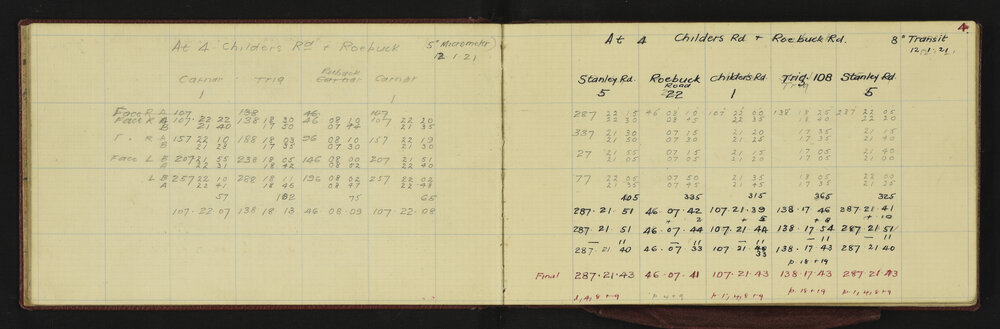 At 4 Childers Rd + Roebuck 5" Micrometer
12.1.21
Carnar Trig Roebuck Carnar
Carnar
1 1
Face R A 107 138 46 107
Face R A 107 22 22 138 18 30 46 08 10 107 22 20
B 21 40 17 50 07 44 21 35
R A 157 22 10 188 18 03 96 08 10 157 22 19
B 21 23 17 35 07 30 21 30
Face L B 207 21 55 238 18 05 146 08 00 207 21 51
22 31 18 42 08 02 22 40
L B 257 22 10 288 18 11 196 08 02 257 22 02
A 22 41 18 46 08 47 22 48
57 102 75 65
107.22.07 138 18 13 46.08.09 107.22.08
4.
At 4 Childers Rd + Roebuck Rd. 8" Transit
12.1.21.
Stanley Rd. Roebuck Childers Rd Trig. 108 Stanley Rd.
Road Trig
5 22 1 5
287 22 15 46 08 10 107 22 00 138 18 25 287 22 05
22 30 08 45 22 35 18 40 22 20
337 21 30 07 15 21 20 17 35 21 15
21 50 07 30 21 25 17 35 21 40
27 21 55 07 15 21 15 17 35 21 40
21 05 07 05 21 05 17 05 21 05
77 22 05 07 50 21 35 18 05 22 00
21 35 07 45 21 35 17 35 21 25
405 335 315 365 325
287.21.51 46.07.42 107.21.39 138.17 46 287.21.41
+ 2 + 5 + 8 + 10
287.21.51 46.07.44 107.21.44 138.17.54 287.21.51
— 11 — 11 — 11 — 11 — 11
287.21 40 46.07 33 107 21 33 138.17.43 287.21 40
p.18+19
Final 287.21.43 46.07.41 107.21.43 138.17.43 287.21.43
1, 4, 8 + 9 p 4+9 p. 1, 4, 8+9 p. 18+19 p. 1, 4, 8+9